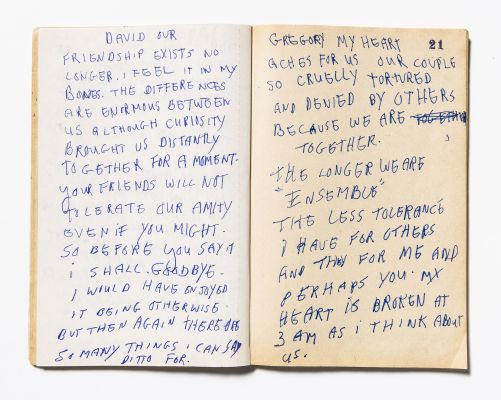 DAVID OUR
FRIENDSHIP EXISTS NO
LONGER. I FEEL IT IN MY
BONES. THE DIFFERENCES
ARE ENORMOUS BETWEEN
US ALTHOUGH CURIOSITY
BROUGHT US DISTANTLY
TOGETHER FOR A MOMENT.
YOUR FRIENDS WILL NOT
TOLERATE OUR AMITY
EVEN IF YOU MIGHT.
SO BEFORE YOU SAY IT
I SHALL. GOODBYE.
I WOULD HAVE ENJOYED
IT BEING OTHERWISE.
BUT THEN AGAIN THERE ARE
SO MANY THINGS I CAN SAY
DITTO FOR.
21
GREGORY MY HEART
ACHES FOR US OUR COUPLE
SO CRUELLY TORTURED
AND DENIED BY OTHERS
BECAUSE WE ARE TOGETHER
TOGETHER.
THE LONGER WE ARE
"ENSEMBLE"
THE LESS TOLERANCE
I HAVE FOR OTHERS
AND THEY FOR ME AND
PERHAPS YOU. MY
HEART IS BROKEN AT
3 AM AS I THINK ABOUT
US.